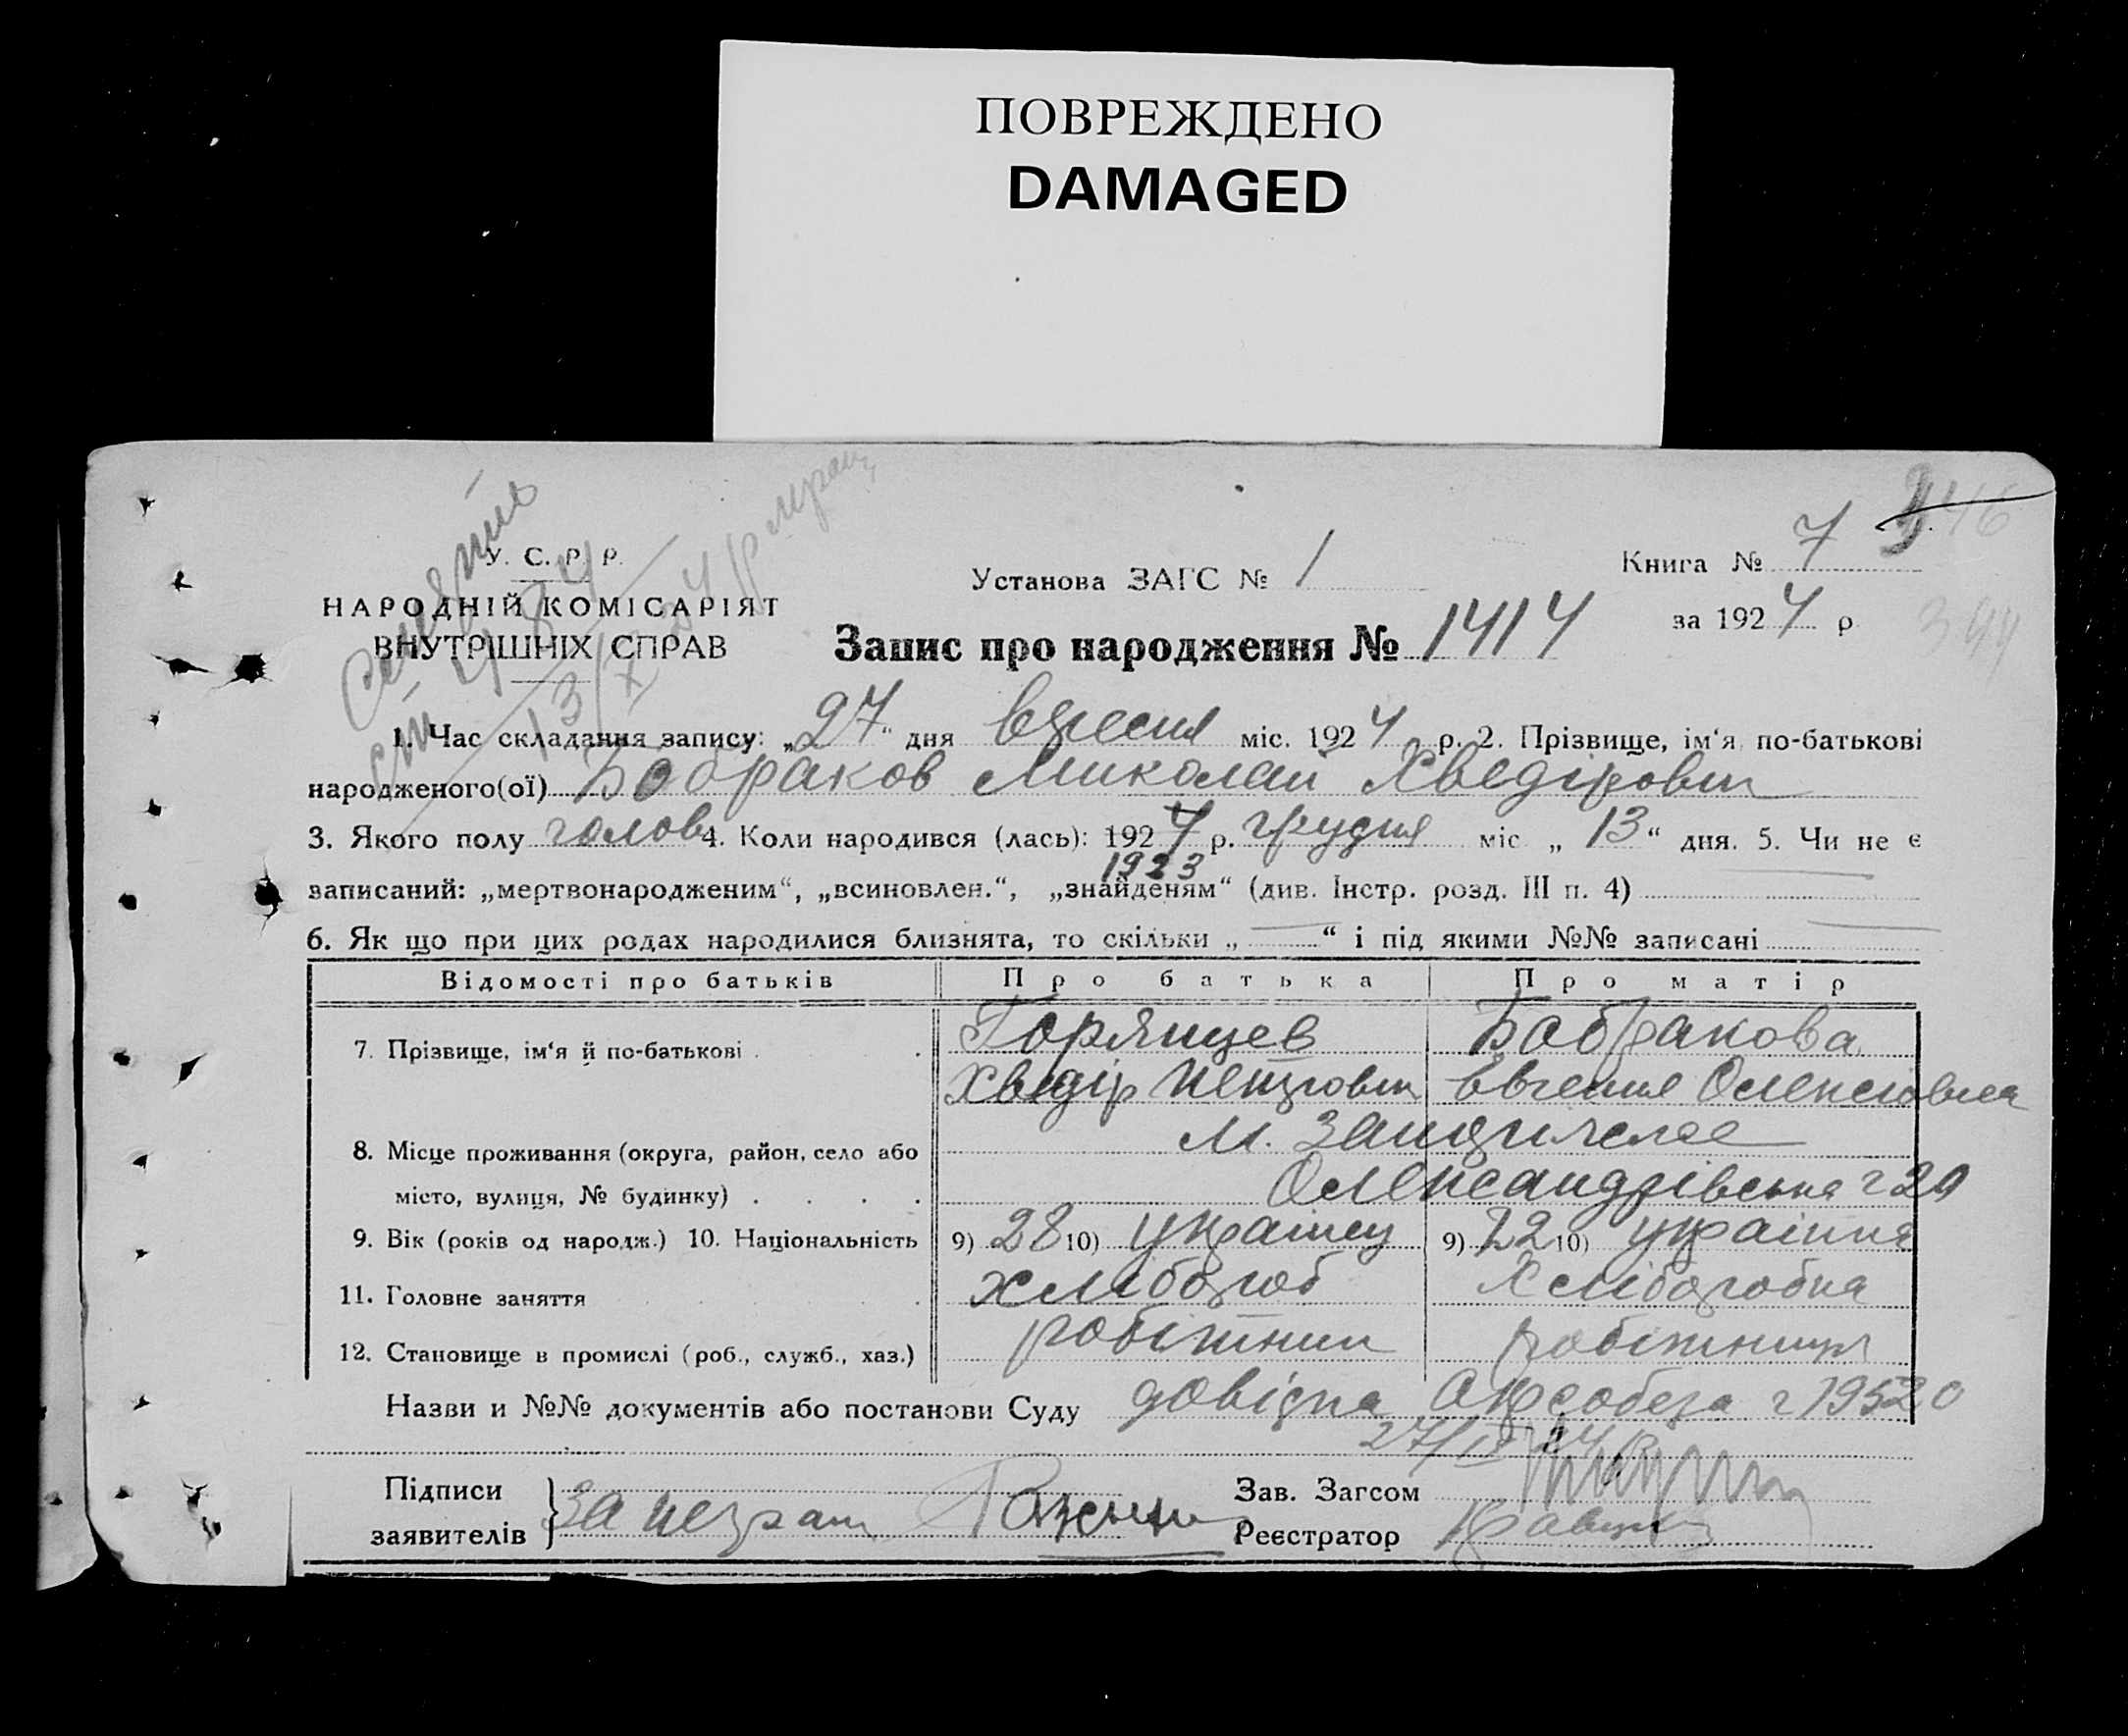 ПОВРЕЖДЕНО
DAMAGED
У. С. Р. Р.
НАРОДНІЙ КОМІСАРІЯТ
ВНУТРІШНІХ СПРАВ
Установа ЗАГС № 1
Книга № 7
за 1924 р.
Запис про народження № 1414
1. Час складання запису: „27“ дня вересня міс. 1924 р. 2. Прізвище, ім‘я, по-батькові
народженого(ої) Бобраков Миколай Хведірович
3. Якого полу голов 4. Коли народився (лась): 1924 р. грудня міс. „13“ дня. 5. Чи не є
1923
записаний: „мертвонародженим“, „всиновлен.“, „знайденям“ (див. Інстр. розд. III п. 4)
6. Як що при цих родах народилися близнята, то скільки „ “ і під якими №№ записані
Відомості про батьків Про батька Про матір
7. Прізвище, ім‘я й по-батькові Горяинцев Бобракова
Хведір Петрович Евгения Олексіовна
8. Місце проживання (округа, район, село або м.
місто, вулиця, № будинку) Олександрівська 29
9. Вік (років од народж.) 10. Національність 9) 28 10) українец 9) 22 10) україинка
11. Головне заняття хлібороб Хліборобка
12. Становище в промислі (роб., служб., хаз.) робітник робітниця
Назви и №№ документів або постанови Суду довідка Окрсобеза 19520
27/IX 24
Підписи
заявителів За неграм
Зав. Загсом
Реєстратор